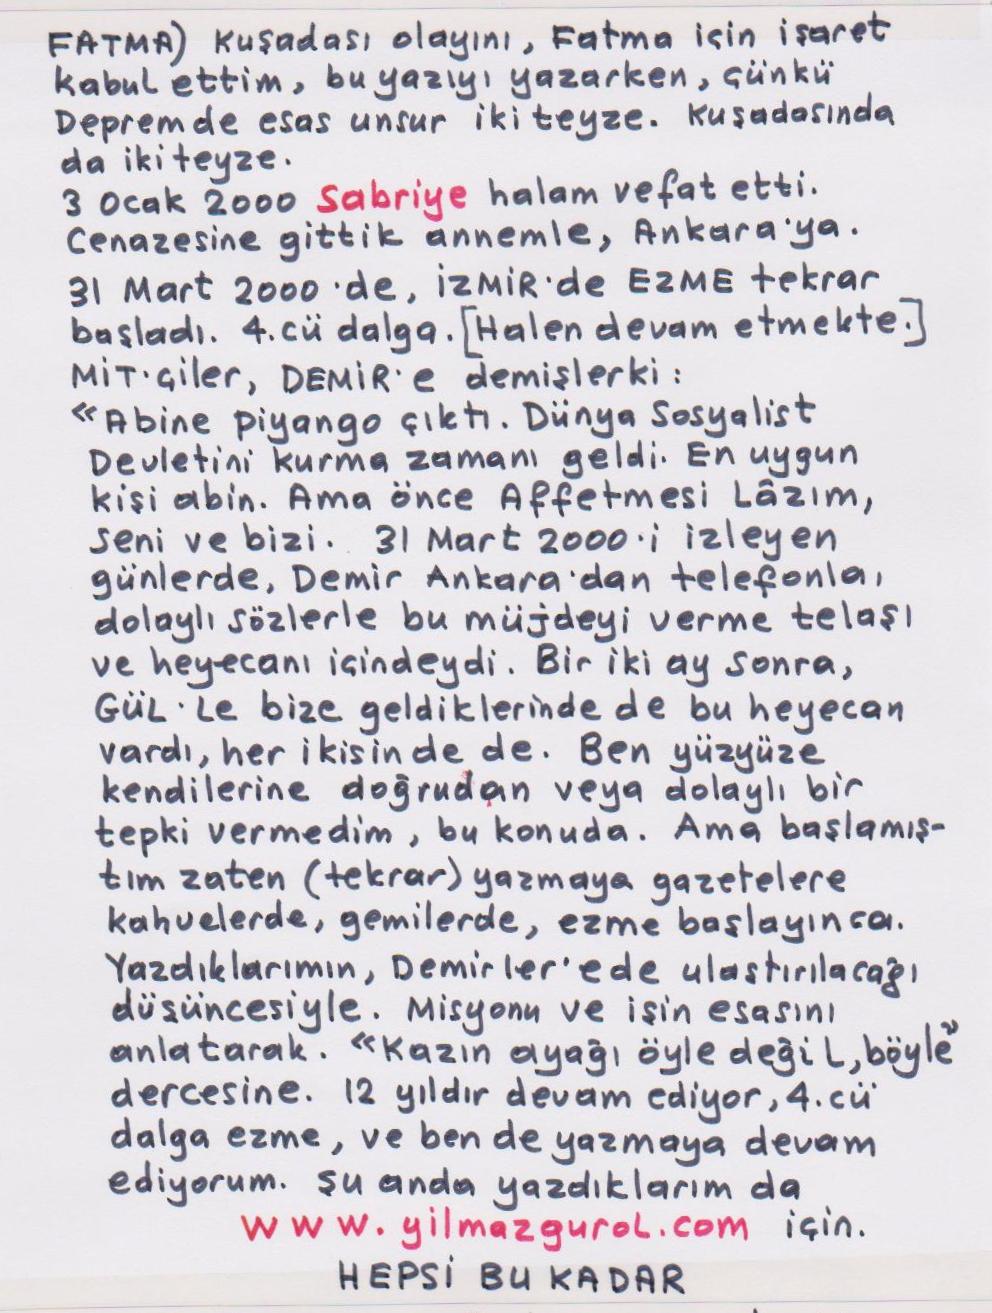 FATMA) Kuşadası olayını, Fatma için işaret
kabul ettim, bu yazıyı yazarken, çünkü
Depremde esas unsur iki teyze. Kuşadasında
da iki teyze.
3 Ocak 2000 Sabriye halam vefat etti.
Cenazesine gittik annemle, Ankara'ya.
31 Mart 2000'de, İZMİR'de EZME tekrar
başladı. 4.cü dalga. [Halen devam etmekte.]
MİT'çiler, DEMİR'e demişlerki:
«Abine piyango çıktı. Dünya Sosyalist
Devletini kurma zamanı geldi. En uygun
kişi abin. Ama önce Affetmesi Lâzım,
seni ve bizi. 31 Mart 2000'i izleyen
günlerde, Demir Ankara'dan telefonla,
dolaylı sözlerle bu müjdeyi verme telaşı
ve heyecanı içindeydi. Bir iki ay sonra,
GÜL'le bize geldiklerinde de bu heyecan
vardı, her ikisinde de. Ben yüzyüze
kendilerine doğrudan veya dolaylı bir
tepki vermedim, bu konuda. Ama başlamış-
tım zaten (tekrar) yazmaya gazetelere
kahvelerde, gemilerde, ezme başlayınca.
Yazdıklarımın, Demirler'ede ulaştırılacağı
düşüncesiyle. Misyonu ve işin esasını
anlatarak. «Kazın ayağı öyle değil, böyle»
dercesine. 12 yıldır devam ediyor, 4.cü
dalga ezme, ve ben de yazmaya devam
ediyorum. Şu anda yazdıklarım da
www.yilmazgurol.com için.
HEPSİ BU KADAR